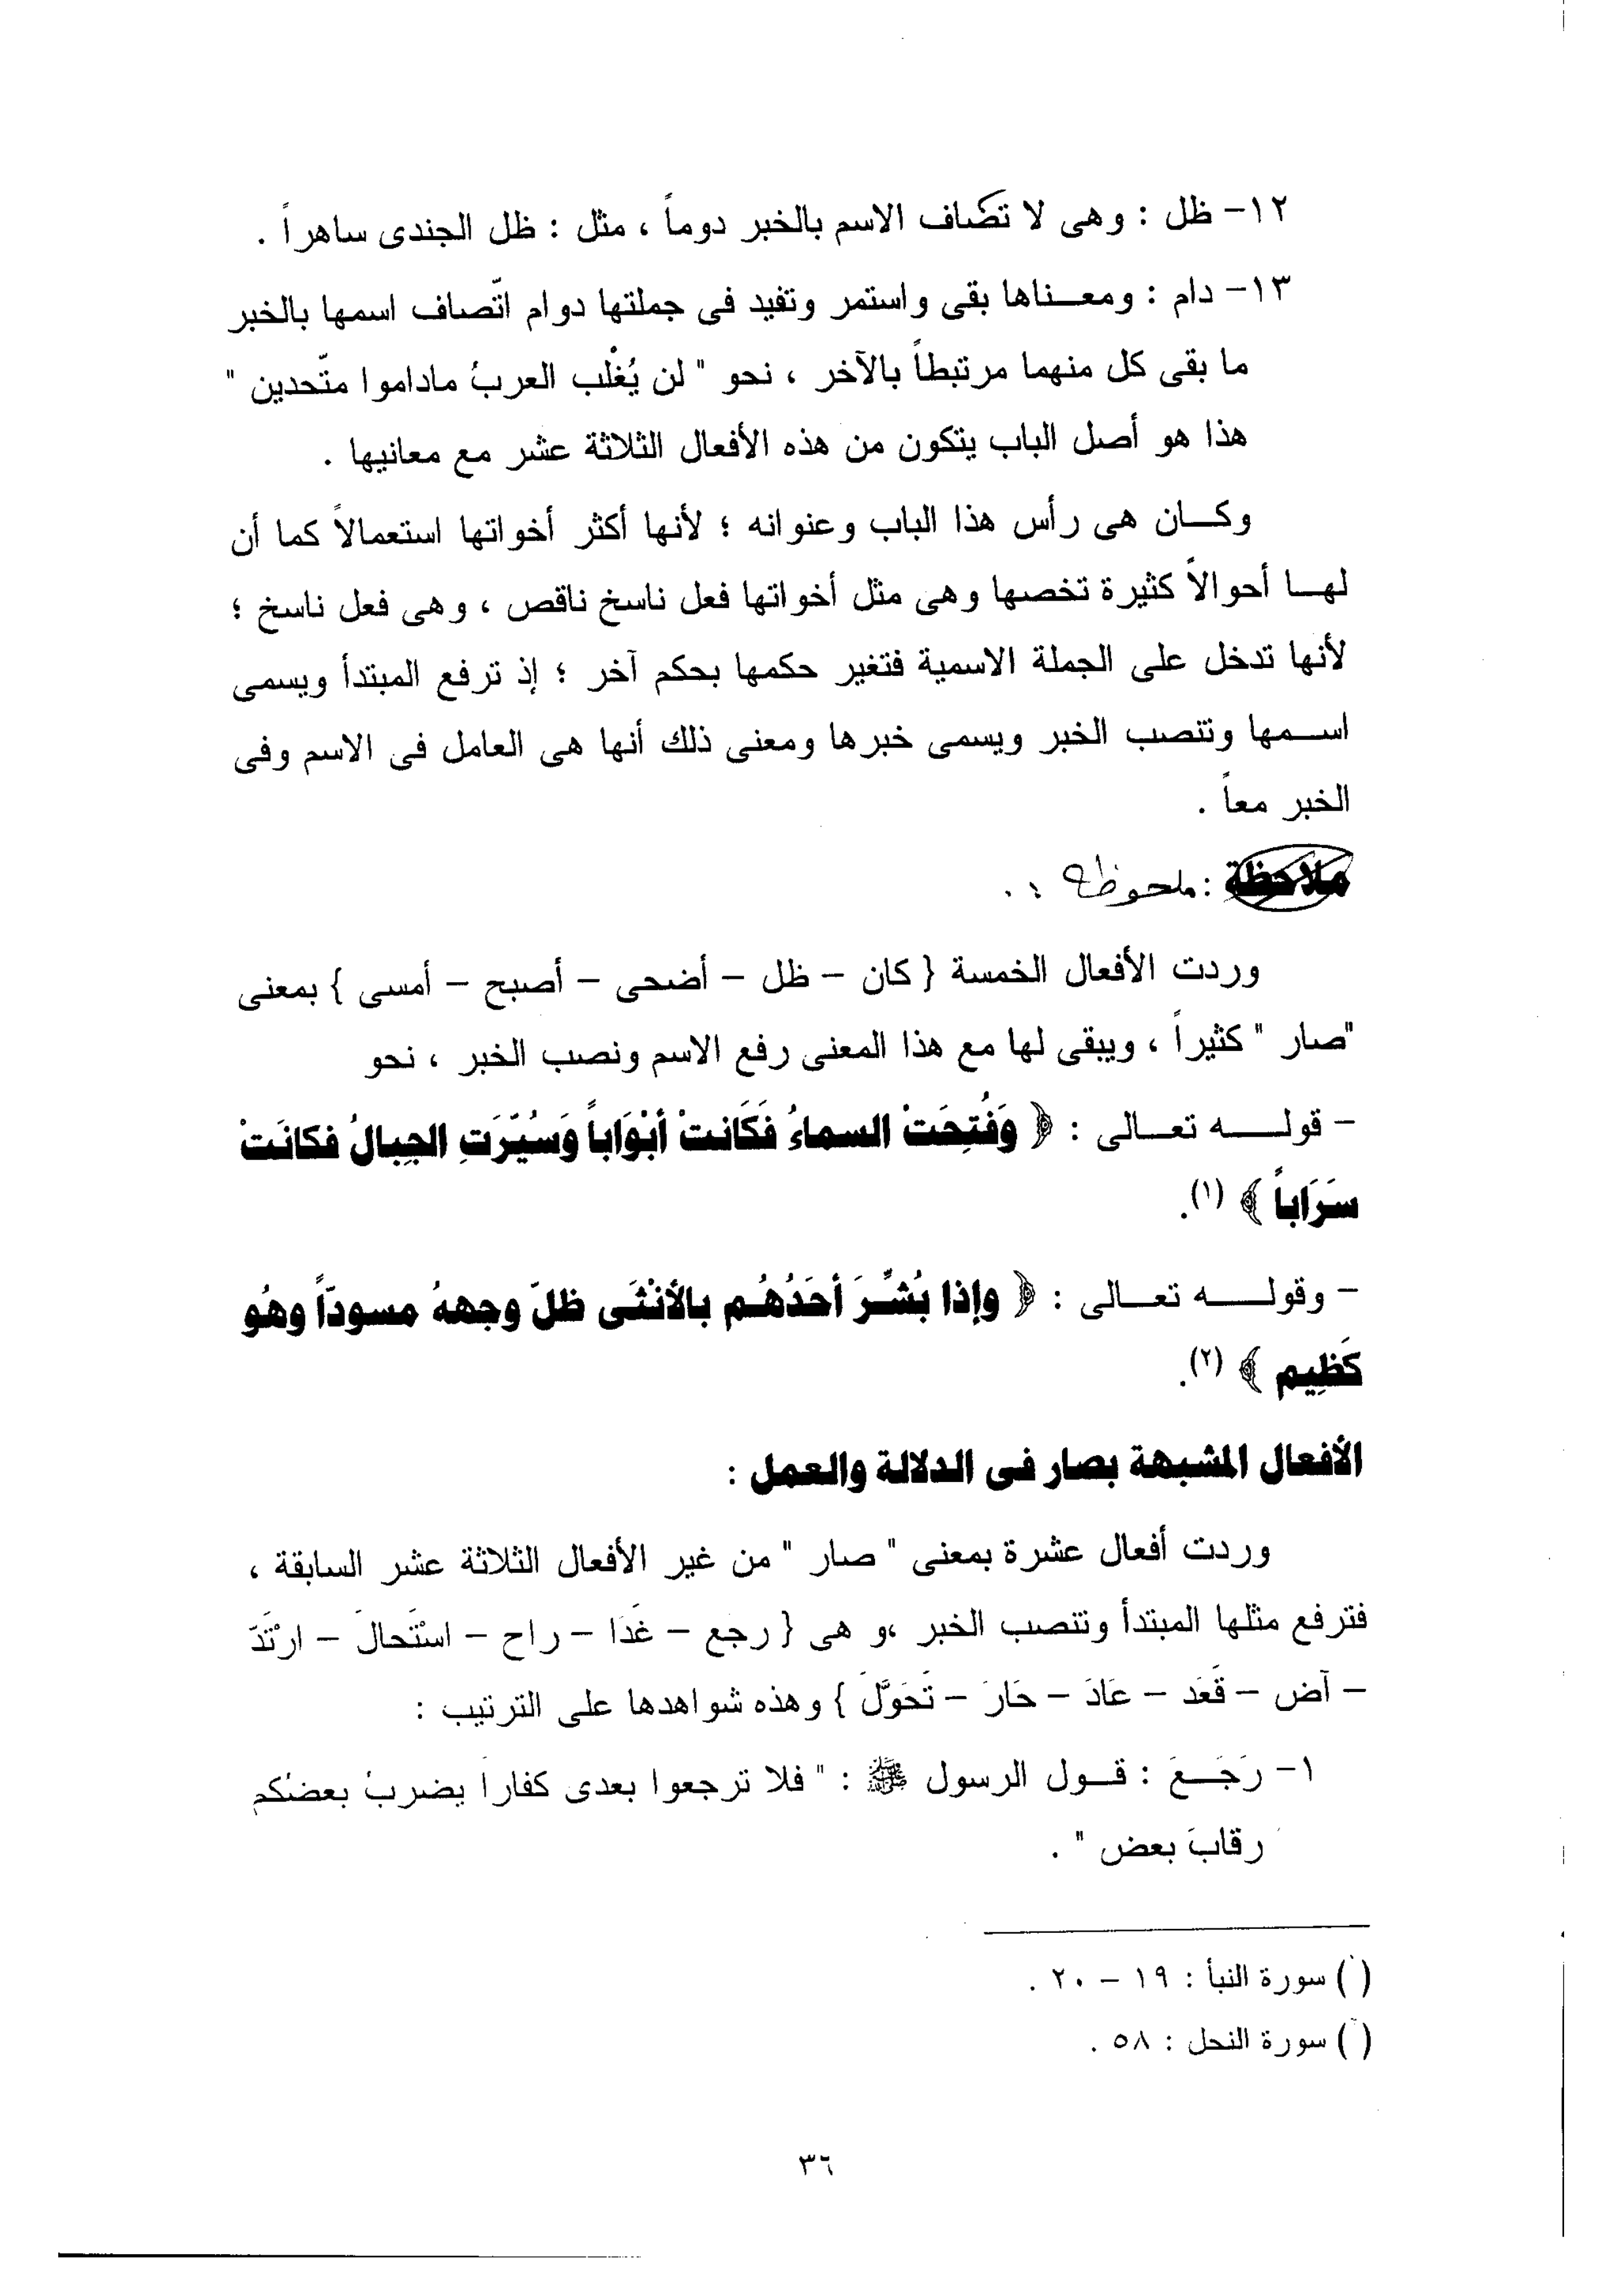 ١٢- ظل : وهى لا تضاف الاسم بالخبر دوماً ، مثل : ظل الجندى ساهراً .
١٣- دام : ومعـــناها بقى واستمر وتفيد فى جملتها دوام اتّصاف اسمها بالخبر
ما بقى كل منهما مرتبطاً بالآخر ، نحو " لن يُغْلب العربُ ماداموا متّحدين "
هذا هو أصل الباب يتكون من هذه الأفعال الثلاثة عشر مع معانيها .
وكـــان هى رأس هذا الباب وعنوانه ؛ لأنها أكثر أخواتها استعمالاً كما أن
لهـــا أحوالاً كثيرة تخصها وهى مثل أخواتها فعل ناسخ ناقص ، وهى فعل ناسخ ؛
لأنها تدخل على الجملة الاسمية فتغير حكمها بحكم آخر ؛ إذ ترفع المبتدأ ويسمى
اســـمها وتنصب الخبر ويسمى خبرها ومعنى ذلك أنها هى العامل فى الاسم وفى
الخبر معاً .
ملاحظة : ملحوظة :.
وردت الأفعال الخمسة { كان – ظل – أضحى – أصبح – أمسى } بمعنى
"صار " كثيراً ، ويبقى لها مع هذا المعنى رفع الاسم ونصب الخبر ، نحو
– قولـــــه تعـــالى : ﴿ وَفُتِحَتْ السماءُ فَكَانتْ أبْوَاباً وَسُيّرَتِ الجِبالُ فكانَتْ
سَرَاباً ﴾ (١).
– وقولـــــه تعـــالى : ﴿ وإذا بُشِّــرَ أحَدُهُــم بالأنْثَــى ظلّ وجههُ مسودّاً وهُو
كَظِيم ﴾ (٢).
الأفعال المشبهة بصار فى الدلالة والعمل :
وردت أفعال عشرة بمعنى " صار " من غير الأفعال الثلاثة عشر السابقة ،
فترفع مثلها المبتدأ وتنصب الخبر ،و هى { رجع – غَدَا – راح – استَحالَ – ارْتَدّ
– آض – قَعَد – عَادَ – حَارَ – تَحَوَّلَ } وهذه شواهدها على الترتيب :
١- رَجَــعَ : قــول الرسول ﷺ : " فلا ترجعوا بعدى كفاراً يضربُ بعضُكم
رقابَ بعض " .
(١) سورة النبأ : ١٩ – ٢٠ .
(٢) سورة النحل : ٥٨ .
٣٦